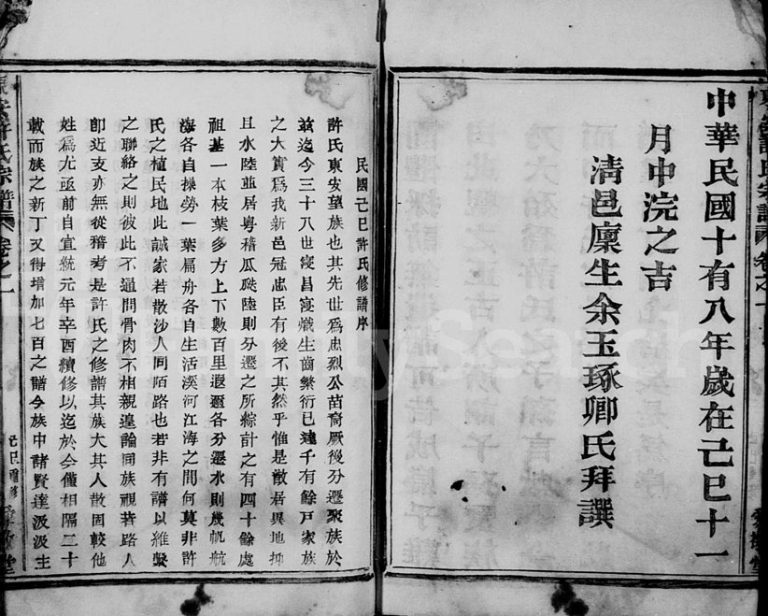 中華民國十有八年歲在己巳十一
月中浣之吉
清邑廩生余玉琢卿氏拜譔
民國己巳許氏修譜序
許氏東安望族也其先世為忠烈公苗裔厥後分遷聚族於
茲迄今三十八世寖昌寖熾生齒繁衍已達千有餘戶家族
之大實為我新邑冠忠臣有後不其然乎惟是散居異地抑
且水陸並居粵稽瓜瓞陸則分遷之所綜計之有四十餘處
祖基一本枝葉多方上下數百里遐邇各分遷水則幾帆航
海各自操勞一葉扁舟各自生活溪河江海之間何莫非許
氏之植民地此誠家若散沙人同陌路也若非有譜以維繫
之聯絡之則彼此不通問骨肉不相親遑論同族視若路人
卽近支亦無從稽考是許氏之修譜其族大其人散固較他
姓為尤亟前自宣統元年辛酉續修以迄於今僅相隔二十
載而族之新丁又得增加七百之譜今族中諸賢達汲汲生
許氏宗譜 卷之一
己巳重修